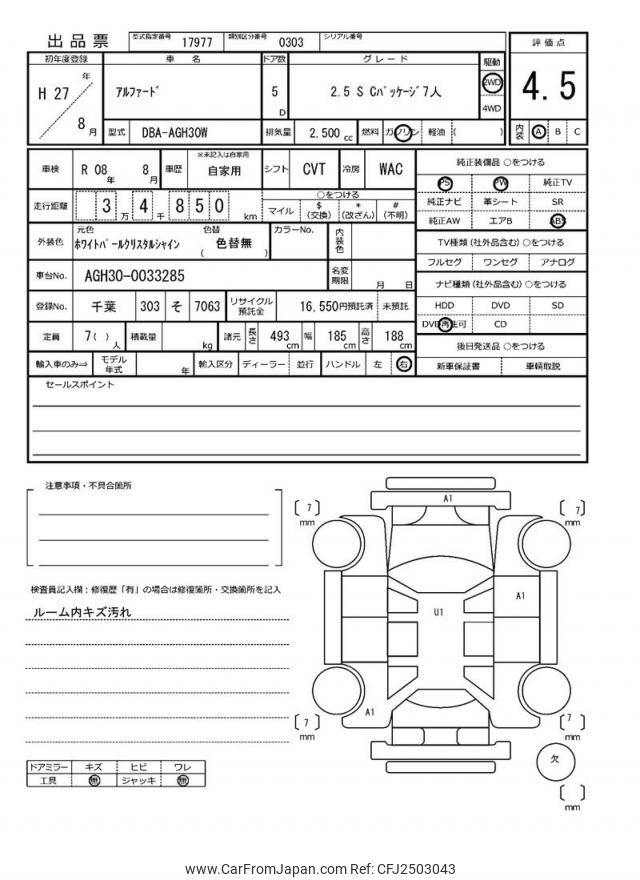 出品票 型式指定番号 17977 類別区分番号 0303 シリアル番号
初年度登録 車 名 ドア数 グレード 駆動 評価点
H 27 年 8 月 アルファード 5 D 2.5 S Cパッケージ7人 2WD 4WD 4.5
型式 DBA-AGH30W 排気量 2,500 cc 燃料 ガソリン 軽油 ( ) 内装 A B C
車検 R 08 年 8 月 車歴 ※未記入は自家用 自家用 シフト CVT 冷房 WAC
走行距離 3 万 4 千 8 5 0 km ○をつける
マイル $ (交換) * (改ざん) # (不明)
外装色 元色 ホワイトパールクリスタルシャイン 色替 ( 色替無 ) カラーNo. 内装色
車台No. AGH30-0033285 名変期限 月 日
登録No. 千葉 303 そ 7063 リサイクル預託金 16,550円預託済 未預託
定員 7 ( ) 人 積載量 kg 諸元 長さ 493 cm 幅 185 cm 高さ 188 cm
輸入車のみ⇒ モデル年式 年 輸入区分 ディーラー 並行 ハンドル 左 右
純正装備品 ○をつける
PS PW 純正TV
純正ナビ 革シート SR
純正AW エアB ABS
TV種類 (社外品含む) ○をつける
フルセグ ワンセグ アナログ
ナビ種類 (社外品含む) ○をつける
HDD DVD SD
DVD再生可 CD
後日発送品 ○をつける
新車保証書 車輌取説
セールスポイント
注意事項・不具合箇所
検査員記入欄：修復歴「有」の場合は修復箇所・交換箇所を記入
ルーム内キズ汚れ
ドアミラー キズ ヒビ ワレ
工具 無 ジャッキ 無
7 mm
A1
7 mm
A1
U1
A1
7 mm
7 mm
欠
mm
www.CarFromJapan.com Ref: CFJ2503043